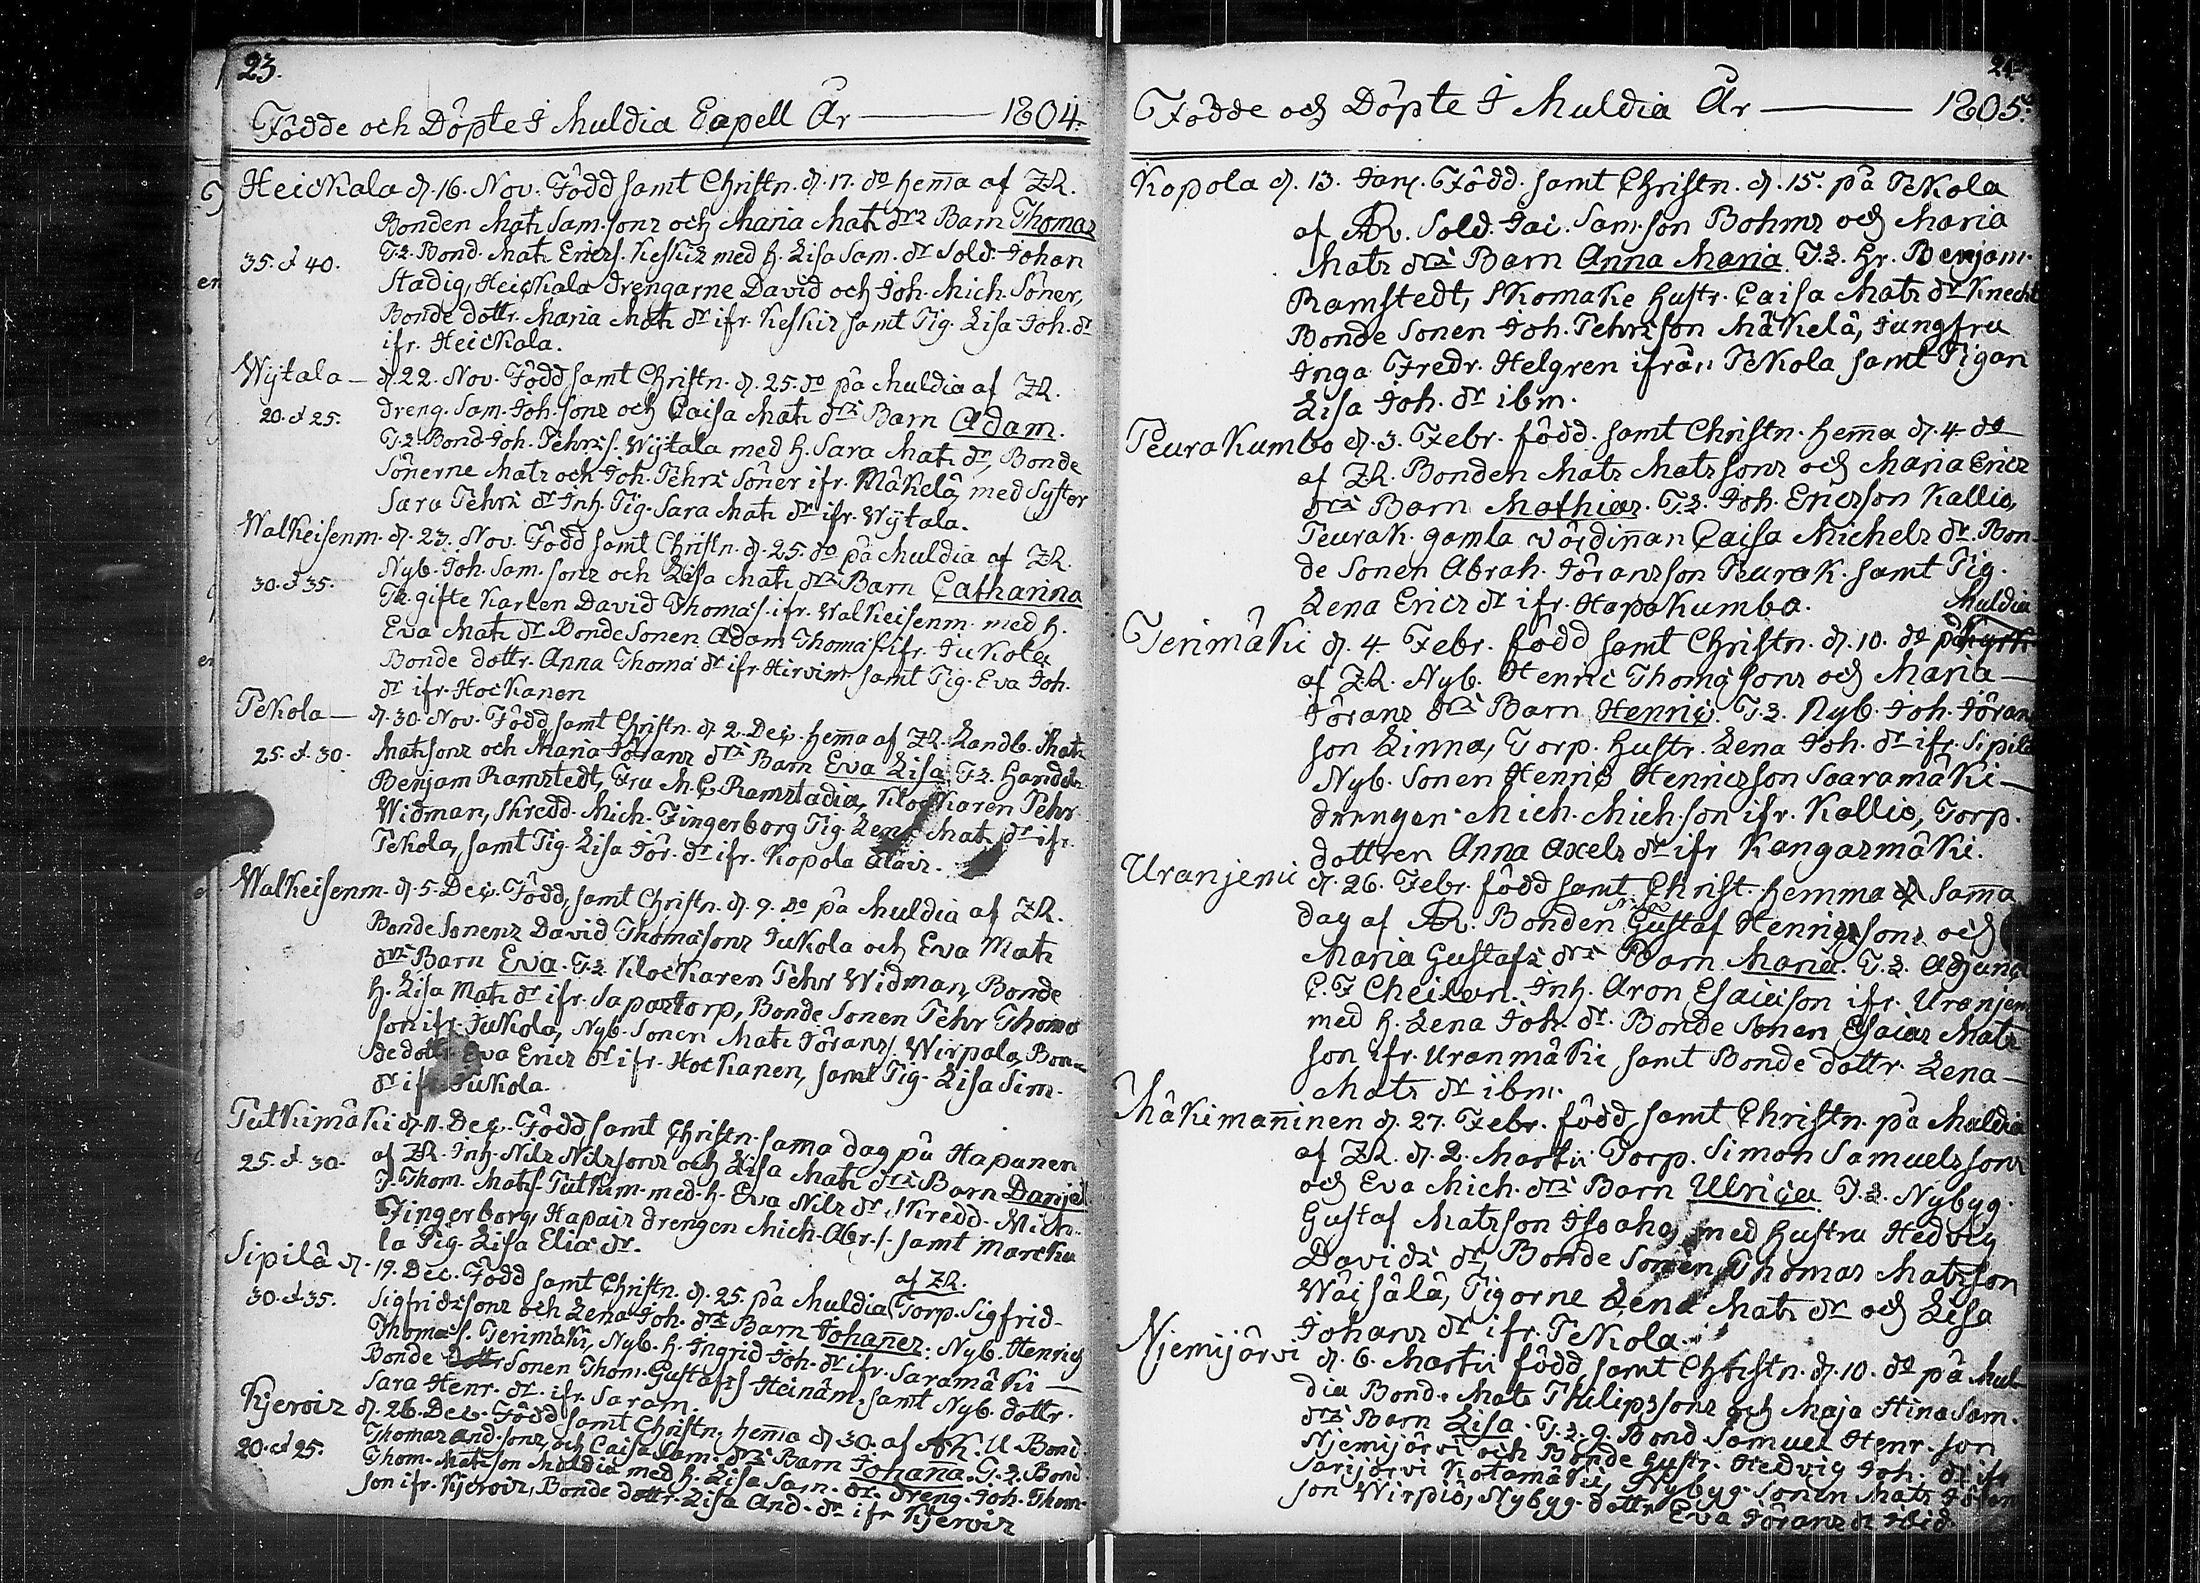 23.
Födde och Döpte I Muldia Capell År 1804.
Heickala d. 16. Nov. Född samt Christn. d. 17. do hem̄a af ZR.
Bonden Mats Sam. sons och Maria Mats drs Barn Thomas
35. d 40. T.2. Bond. Mats Erics. Keskis med H. Lisa Sam. dr Sold. Johan
Stadig, Heickala drengarne David och Joh. Mich. Söner,
Bonde dottr. Maria Mats dr ifr. Keskis samt Pig. Lisa Joh. dr
ifr. Heickala.
Wijtala — d. 22. Nov. Född samt Christn. d. 25. do på Muldia af ZR.
20. d 25. dreng. Sam. Joh. sons och Caisa Mats drs Barn Adam.
T.2. Bond. Joh. Pehrs s. Wijtala med H. Sara Mats dr, Bonde
Sönerne Mats och Joh. Pehrs Söner ifr. Mäkelä med Syster
Sara Pehrs dr Inh. Pig. Sara Mats dr ifr. Wijtala.
Walkeisenm. d. 23. Nov. Född samt Christn. d. 25. do på Muldia af ZR.
30. d 35. Nyb. Joh. Sam. sons och Lisa Mats drs Barn Catharina
T.2. gifte Karlen David Thomas s. ifr. Walkeisenm. med H.
Eva Mats dr Bonde Sonen Adam Thomas s ifr. Jukola
Bonde dottr. Anna Thomas dr ifr Hirvim. samt Pig. Eva Joh.
dr ifr. Hockanen
Pekola — d. 30. Nov. Född samt Christn. d. 2. Dec. hem̄a af ZR. Landb. Mats
25. d. 30. Matssons och Maria Jörans drs Barn Eva Lisa T.2. Handels
Benjam Ramstedt, Fru M. C. Ramstadia, Klockaren Pehr
Widman, Skredd. Mich. Fingerborg Pig. Lena Mats dr ifr.
Pekola, samt Pig. Lisa Jör. dr ifr. Kopola
Walkeisenm. d. 5. Dec. Född, samt Christn. d. 9. do på Muldia af ZR.
Bonde Sonens David Thomas sons Jukola och Eva Mats
drs Barn Eva. T.2. Klockaren Pehr Widman, Bonde
H. Lisa Mats dr ifr. Sapastorp, Bonde Sonen Pehr Thomas
son ifr. Jukola, Nyb. Sonen Mats Jörans s. Wirpala, Bon-
de dottr. Eva Erics dr ifr. Hockanen, samt Pig. Lisa Sim.
dr ifr. Jukola.
Putkimäki d. 11. Dec. Född samt Christn. sam̄a dag på Hapanen
25. d. 30. af ZR. Inh. Nils Nilssons och Lisa Mats drs Barn Danjel
T. Thom. Mats s. Putkim. med H. Eva Nils dr Skredd. Mich.
Fingerborg, Hapais drengen Mich. Abr. s. samt Marcku-
la Pig. Lisa Elias dr.
Sipilä d. 19. Dec. Född samt Christn. d. 25. på Muldia af ZR. Torp. Sigfrid
30. d. 35. Sigfridssons och Lena Joh. drs Barn Johannes. Nyb. Henric
Thomas s. Terimäki, Nyb. H. Ingrid Joh. dr ifr. Saramäki —
Bonde Sonen Thom. Gustafs s Heinäm. samt Nyb. dottr.
Sara Henr. dr. ifr. Saram.
Kjerois d. 26. Dec. Född samt Christn. hem̄a d 30. af AK. U. Bond.
20. d 25. Thomas And. sons, och Caisa Sam. drs Barn Johan̄a. T.2. Bond
Thom. Matsson Muldia med H. Lisa Sam. dr. dreng. Joh. Thom.
son ifr. Kjerois, Bonde dottr. Lisa And. dr ifr Kjerois
24.
Födde och Döpte I Muldia År 1805.
Kopola d. 13. Jan. Född. samt Christn. d. 15. på Pekola
af AR. Sold. Jac. Sam. son Bohms och Maria
Mats drs Barn Anna Maria T.2. Hr. Benjam.
Ramstedt, Skomake Hustr. Caisa Mats dr Knecht
Bonde Sonen Joh. Pehrsson Mäkelä, Jungfru
Inga Fredr. Helgren ifrån Pekola samt Pigan
Lisa Joh. dr ibm.
Peurakumbo d. 3. Febr. född. samt Christn. hem̄a d. 4. do
af ZR. Bonden Mats Matssons och Maria Erics
drs Barn Mathias. T.2. Joh. Ericsson Kallio,
Peurak. gamla värdin̄an Caisa Michels dr. Bon-
de Sonen Abrah. Jöransson Peurak. samt Pig.
Lena Erics dr ifr. Hapakumbo.
Terimäki d. 4. Febr. född samt Christn. d. 10. do på Muldia
af ZR. Nyb. Henric Thomas sons och Maria —
Jörans drs Barn Henric. T.2. Nyb. Joh. Jörans
son Linna, Torp. Hustr. Lena Joh. dr ifr. Sipilä
Nyb. Sonen Henric Henricsson Soaramäki —
drengen Mich. Mich. son ifr. Kallio, Torp.
dottren Anna Axels dr ifr Kangasmäki.
Uranjemi d. 26. Febr. född samt Christ. hemma sam̄a
dag af AR. Bonden Gustaf Henricssons och
Maria Gustafs drs Barn Maria. T.2. Adjunct
C. F Cheilan. Inh. Aron Esaiesson ifr. Uranjem
med H. Lena Joh. dr. Bonde Sonen Esaias Mats
son ifr. Uranmäki samt Bonde dottr. Lena —
Mats dr ibm.
Mäkiman̄inen d. 27. Febr. född, samt Christn. på Muldia
af ZR. d. 2. Martii Torp. Simon Samuelssons
och Eva Mich. drs Barn Ulrica T.2. Nybyg.
Gustaf Matsson Isoaho, med Hustru Hedvig
Davids dr, Bonde Sonen Thomas Matsson
Wäisälä, Pigorne Lena Mats dr och Lisa
Johans dr ifr. Pekola.
Njemijärvi d. 6. Martii född, samt Christn. d. 10. do på Mul-
dia Bond. Mats Philipssons och Maja Stina Sam.
drs Barn Lisa. T.2. g. Bond Samuel Henr. son
Njemijärvi och Bonde Hustr. Hedvig Joh. dr ifr
Sarijärvi Kotamäki, Nybyg. Sonen Mats Jöran
son Wirpiö, Nybyg. dottr Eva Jörans dr ibid.